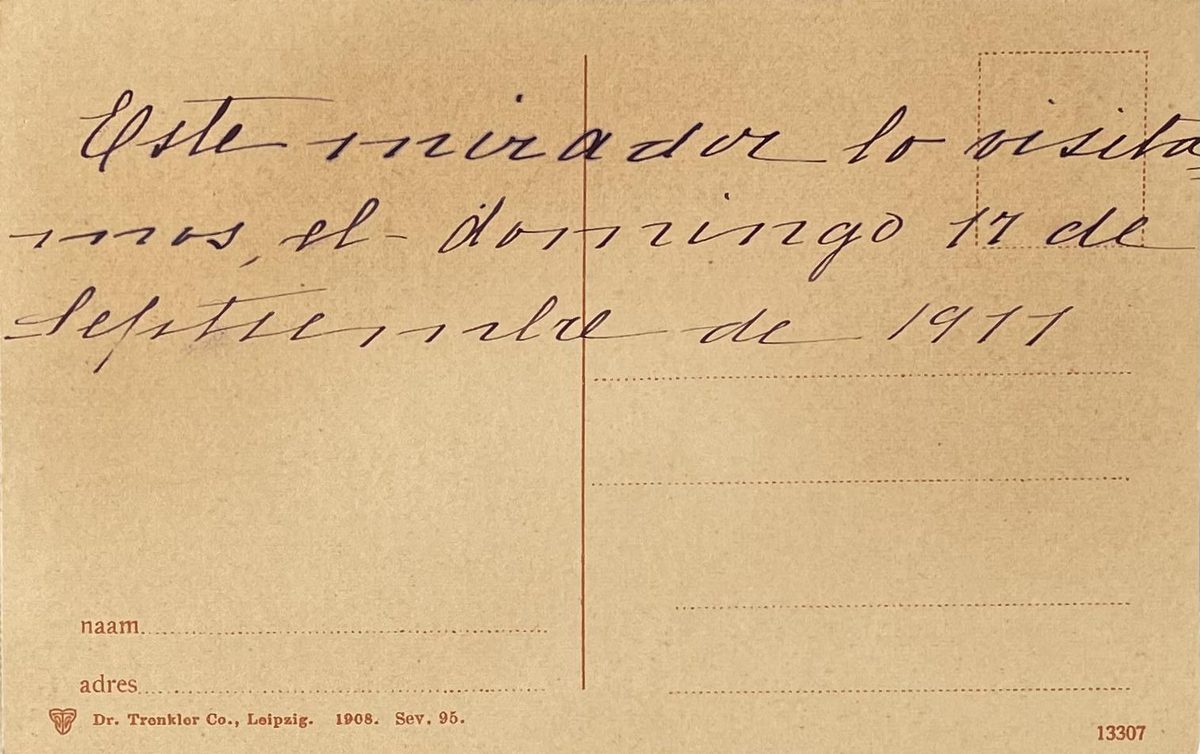 Este mirador lo visita=
mos, el - domingo 17 de
Septiembre de 1911
naam
adres
Dr. Trenkler Co., Leipzig. 1908. Sev. 95.
13307